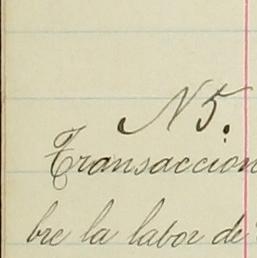 N 5.
Transaccion
bre la labor de